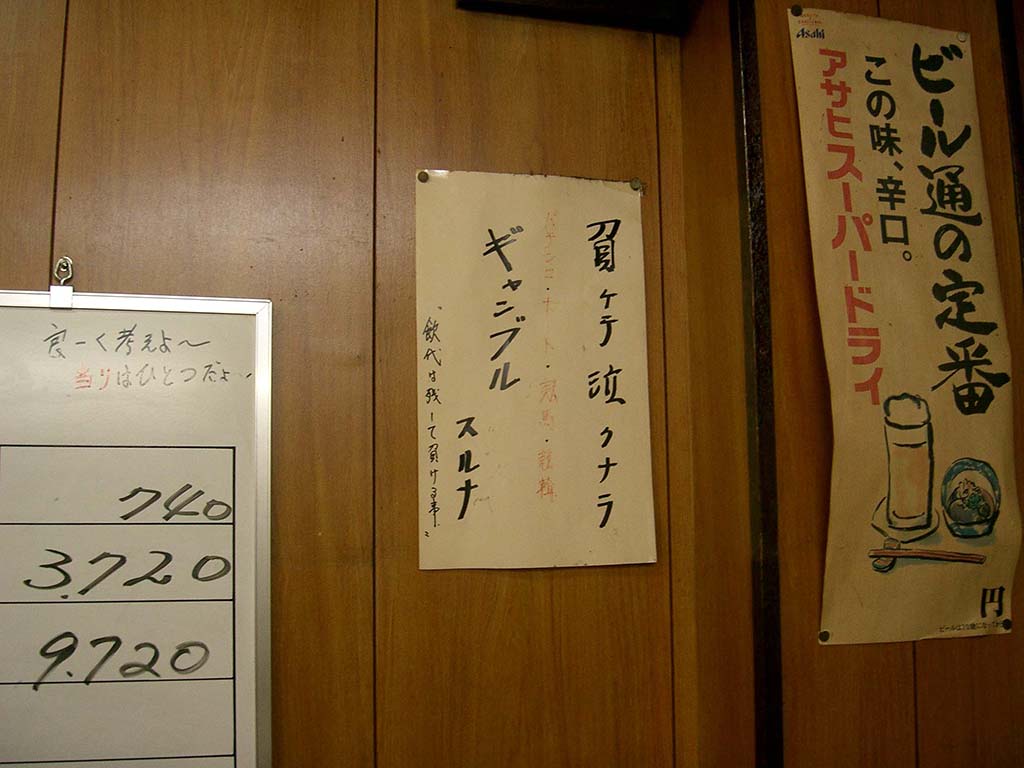 良ーく考えよ〜
当りはひとつだよ
740
3.720
9.720
負ケテ泣クナラ
パチンコ・ボート・競馬・競輪
ギャンブル
スルナ
飲代は残して負ける事
Asahi
ビール通の定番
この味、辛口。
アサヒスーパードライ
円